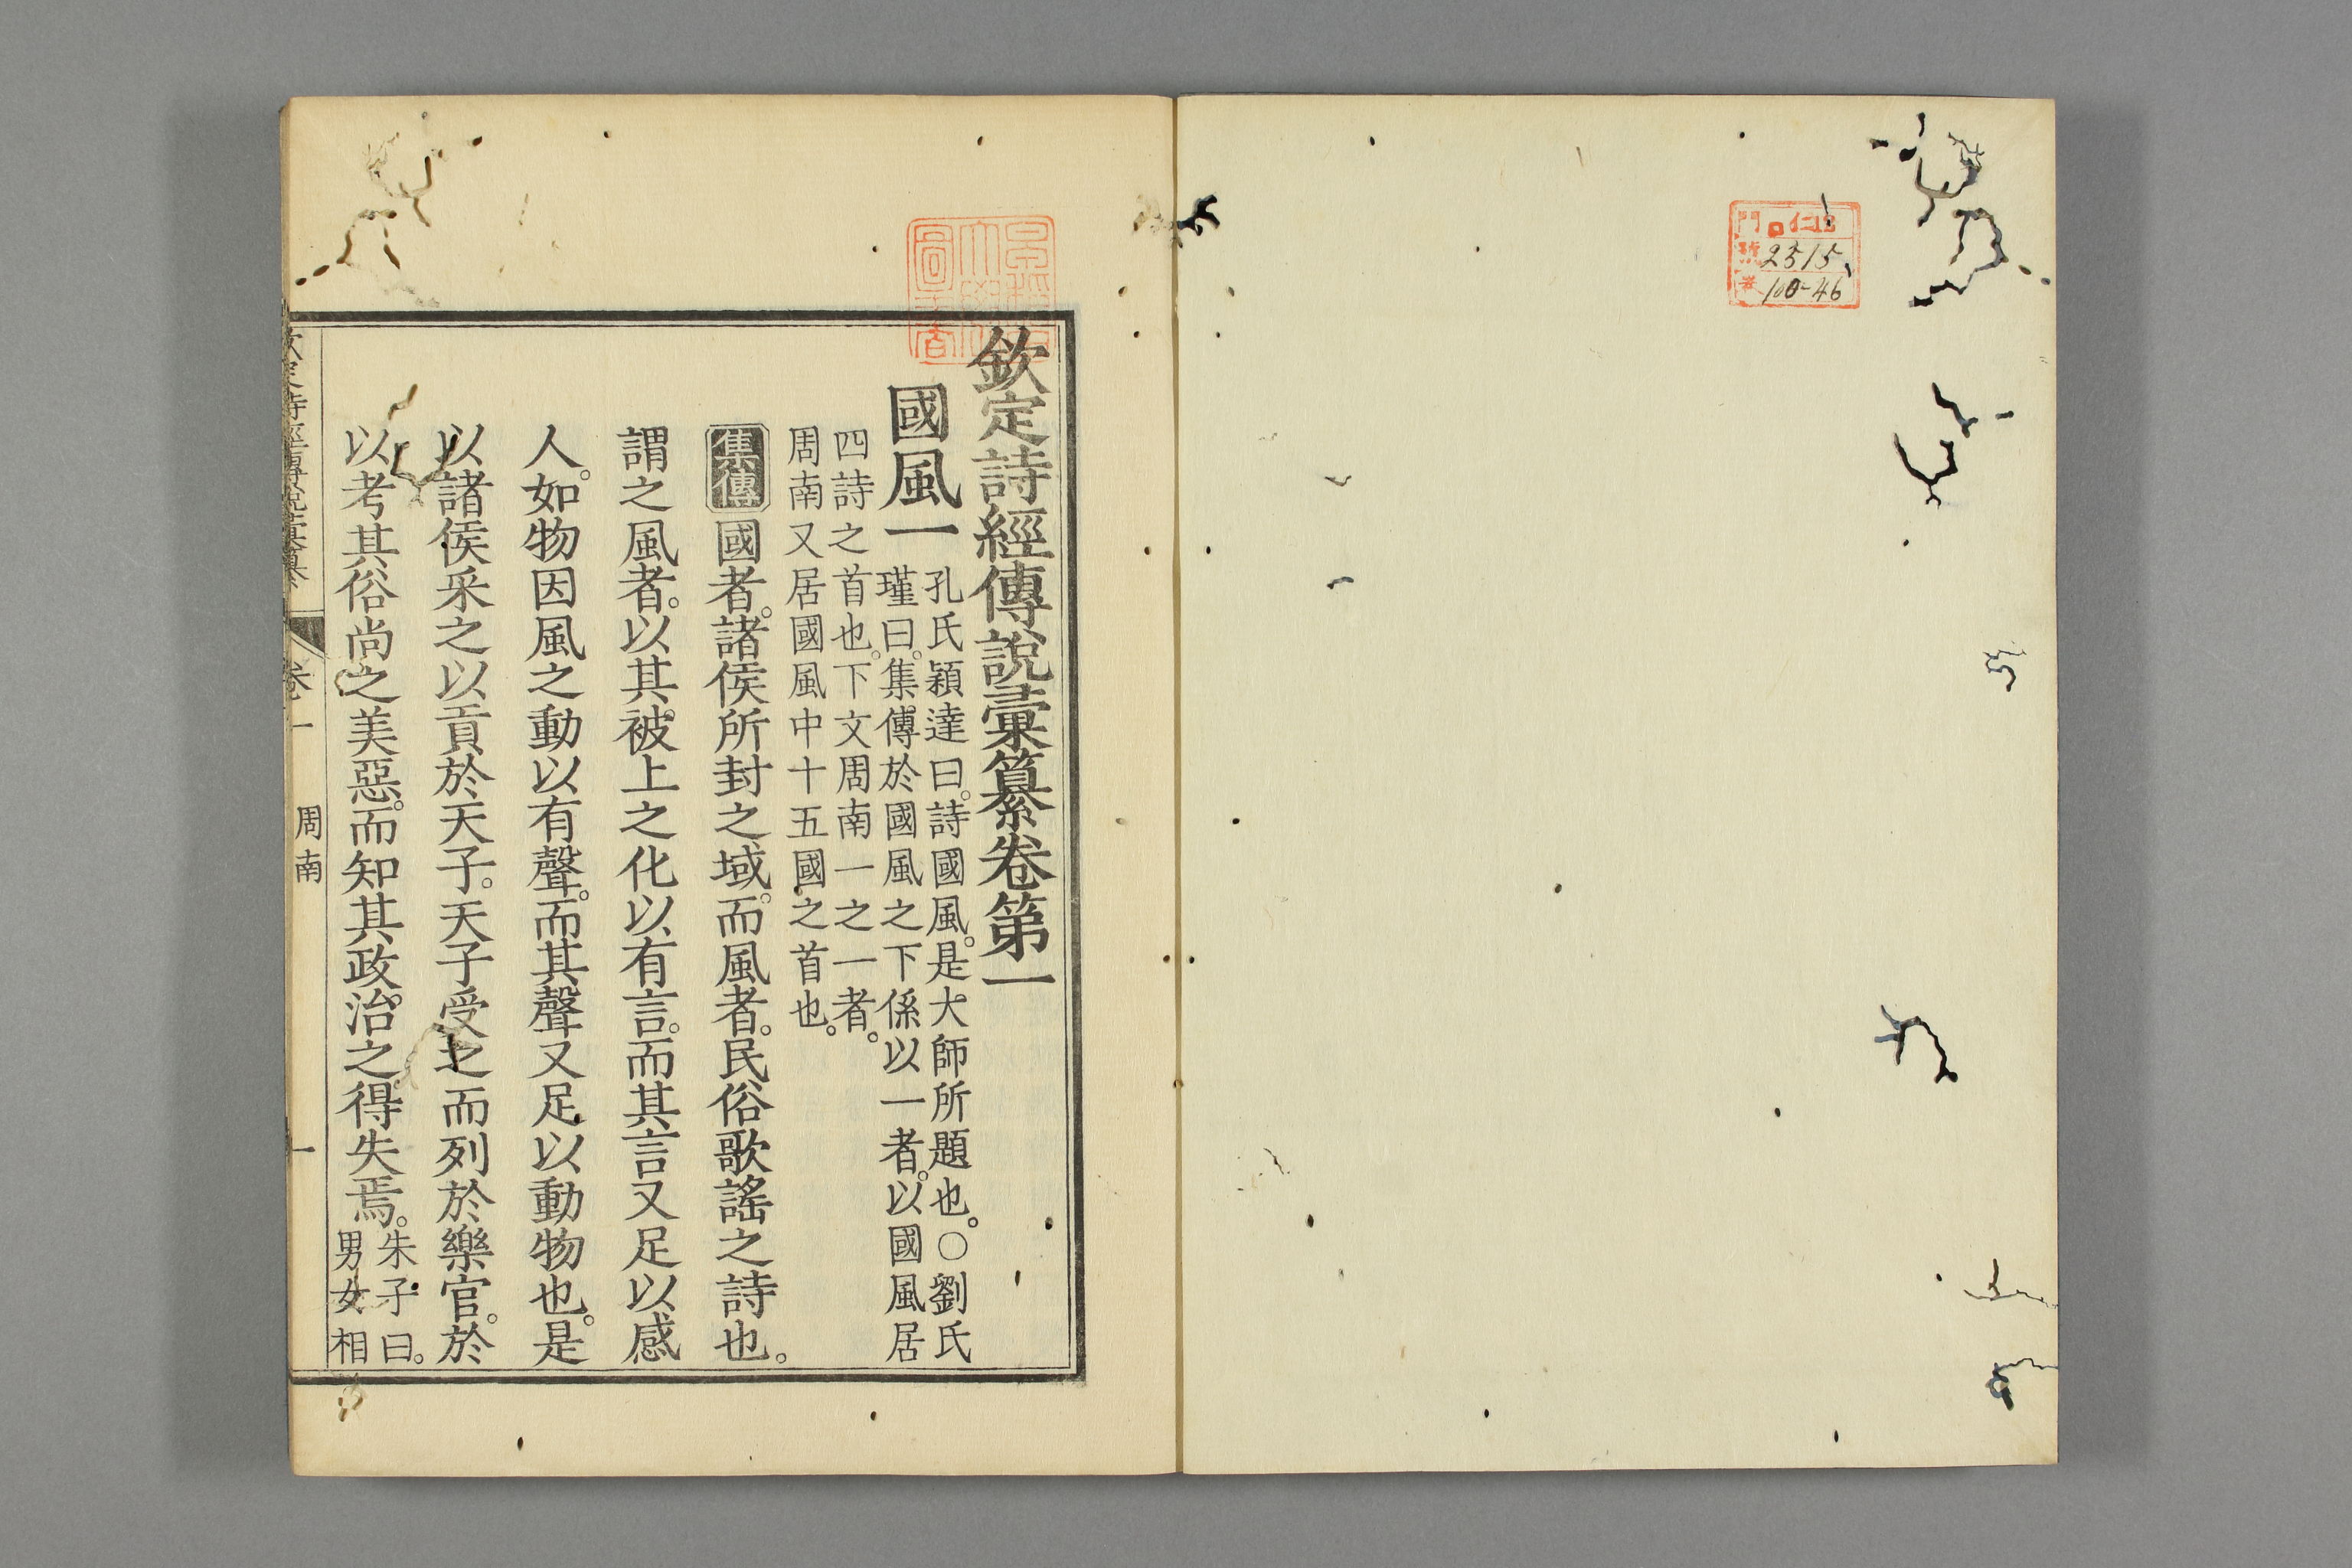 門 仁12
號 2515
巻 100-46
欽定詩經傳說彙纂卷第一
國風一
孔氏穎達曰。詩國風。是大師所題也。○劉氏
瑾曰。集傳於國風之下係以一者。以國風居
四詩之首也。下文周南一之一者。
周南又居國風中十五國之首也。
集傳 國者。諸侯所封之域。而風者。民俗歌謠之詩也。
謂之風者。以其被上之化以有言。而其言又足以感
人。如物因風之動以有聲。而其聲又足以動物也。是
以諸侯采之以貢於天子。天子受之而列於樂官。於
以考其俗尚之美惡。而知其政治之得失焉。
朱子曰。
男女相
欽定詩經傳說彙纂 卷一 周南 一